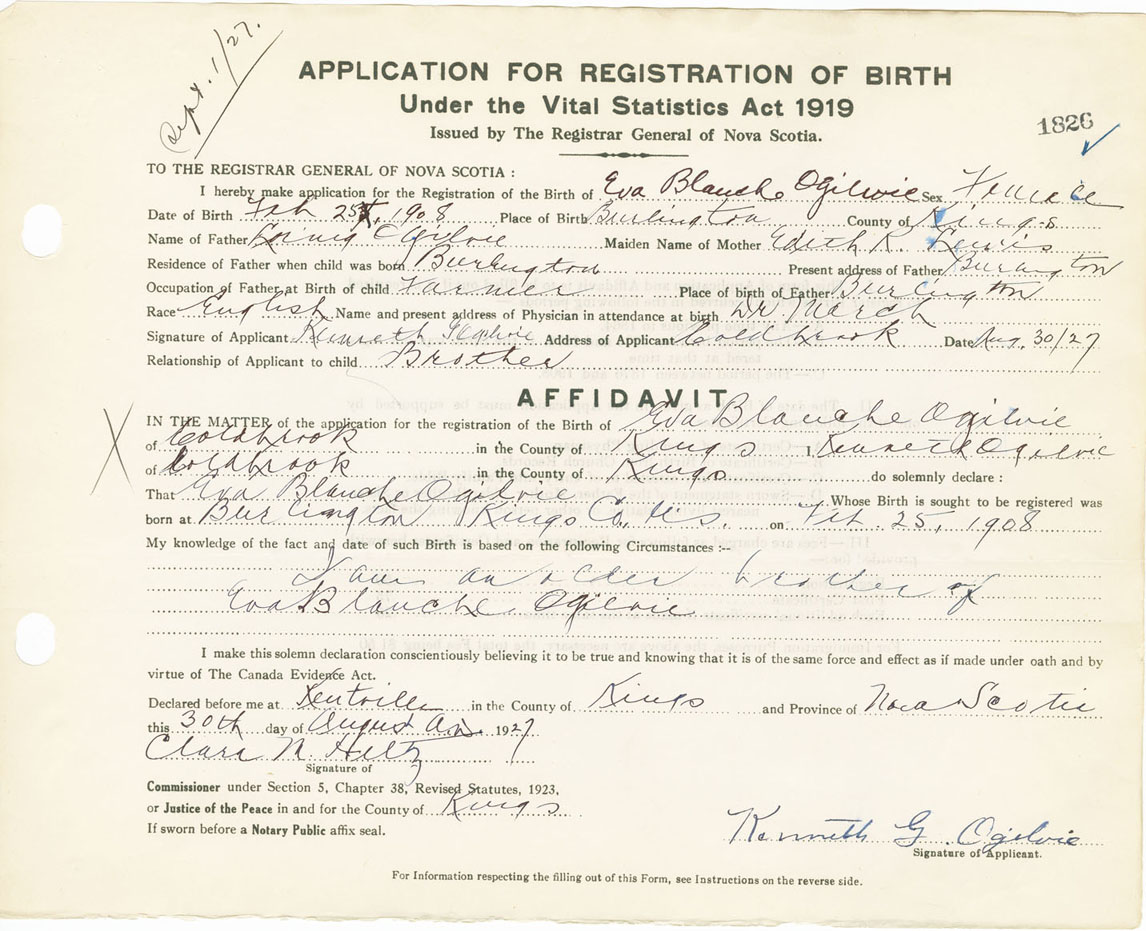 Sept. 1/27.
APPLICATION FOR REGISTRATION OF BIRTH
Under the Vital Statistics Act 1919
Issued by The Registrar General of Nova Scotia.
1826
TO THE REGISTRAR GENERAL OF NOVA SCOTIA :
I hereby make application for the Registration of the Birth of Eva Blanche Ogilvie Sex Female
Date of Birth Feb 25, 1908 Place of Birth Burlington County of Kings
Name of Father Ogilvie Maiden Name of Mother Edith K. Lewis
Residence of Father when child was born Burlington Present address of Father Burlington
Occupation of Father at Birth of child Farmer Place of birth of Father Burlington
Race English Name and present address of Physician in attendance at birth Dr March
Signature of Applicant Kenneth G Ogilvie Address of Applicant Coldbrook Date Aug. 30/27
Relationship of Applicant to child Brother
AFFIDAVIT
IN THE MATTER of the application for the registration of the Birth of Eva Blanche Ogilvie
of Coldbrook in the County of Kings I Kenneth Ogilvie
of Coldbrook in the County of Kings do solemnly declare :
That Eva Blanche Ogilvie Whose Birth is sought to be registered was
born at Burlington Kings Co., N.S. on Feb. 25, 1908
My knowledge of the fact and date of such Birth is based on the following Circumstances :--
I am an older brother of
Eva Blanche Ogilvie
I make this solemn declaration conscientiously believing it to be true and knowing that it is of the same force and effect as if made under oath and by
virtue of The Canada Evidence Act.
Declared before me at Kentville in the County of Kings and Province of Nova Scotia
this 30th day of August A.D. 1927
Clara M. Hiltz
Signature of
Commissioner under Section 5, Chapter 38, Revised Statutes, 1923,
or Justice of the Peace in and for the County of Kings
If sworn before a Notary Public affix seal.
Kenneth G. Ogilvie
Signature of Applicant.
For Information respecting the filling out of this Form, see Instructions on the reverse side.